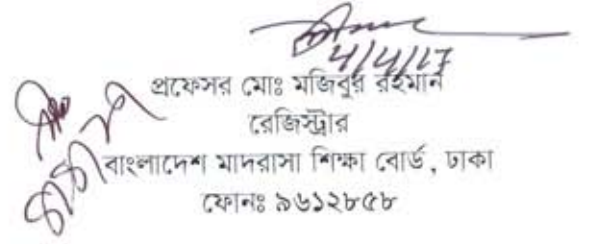 4/4/17
প্রফেসর মোঃ মজিবুর রহমান
রেজিস্ট্রার
বাংলাদেশ মাদরাসা শিক্ষা বোর্ড, ঢাকা
ফোনঃ ৯৬১২৮৫৮